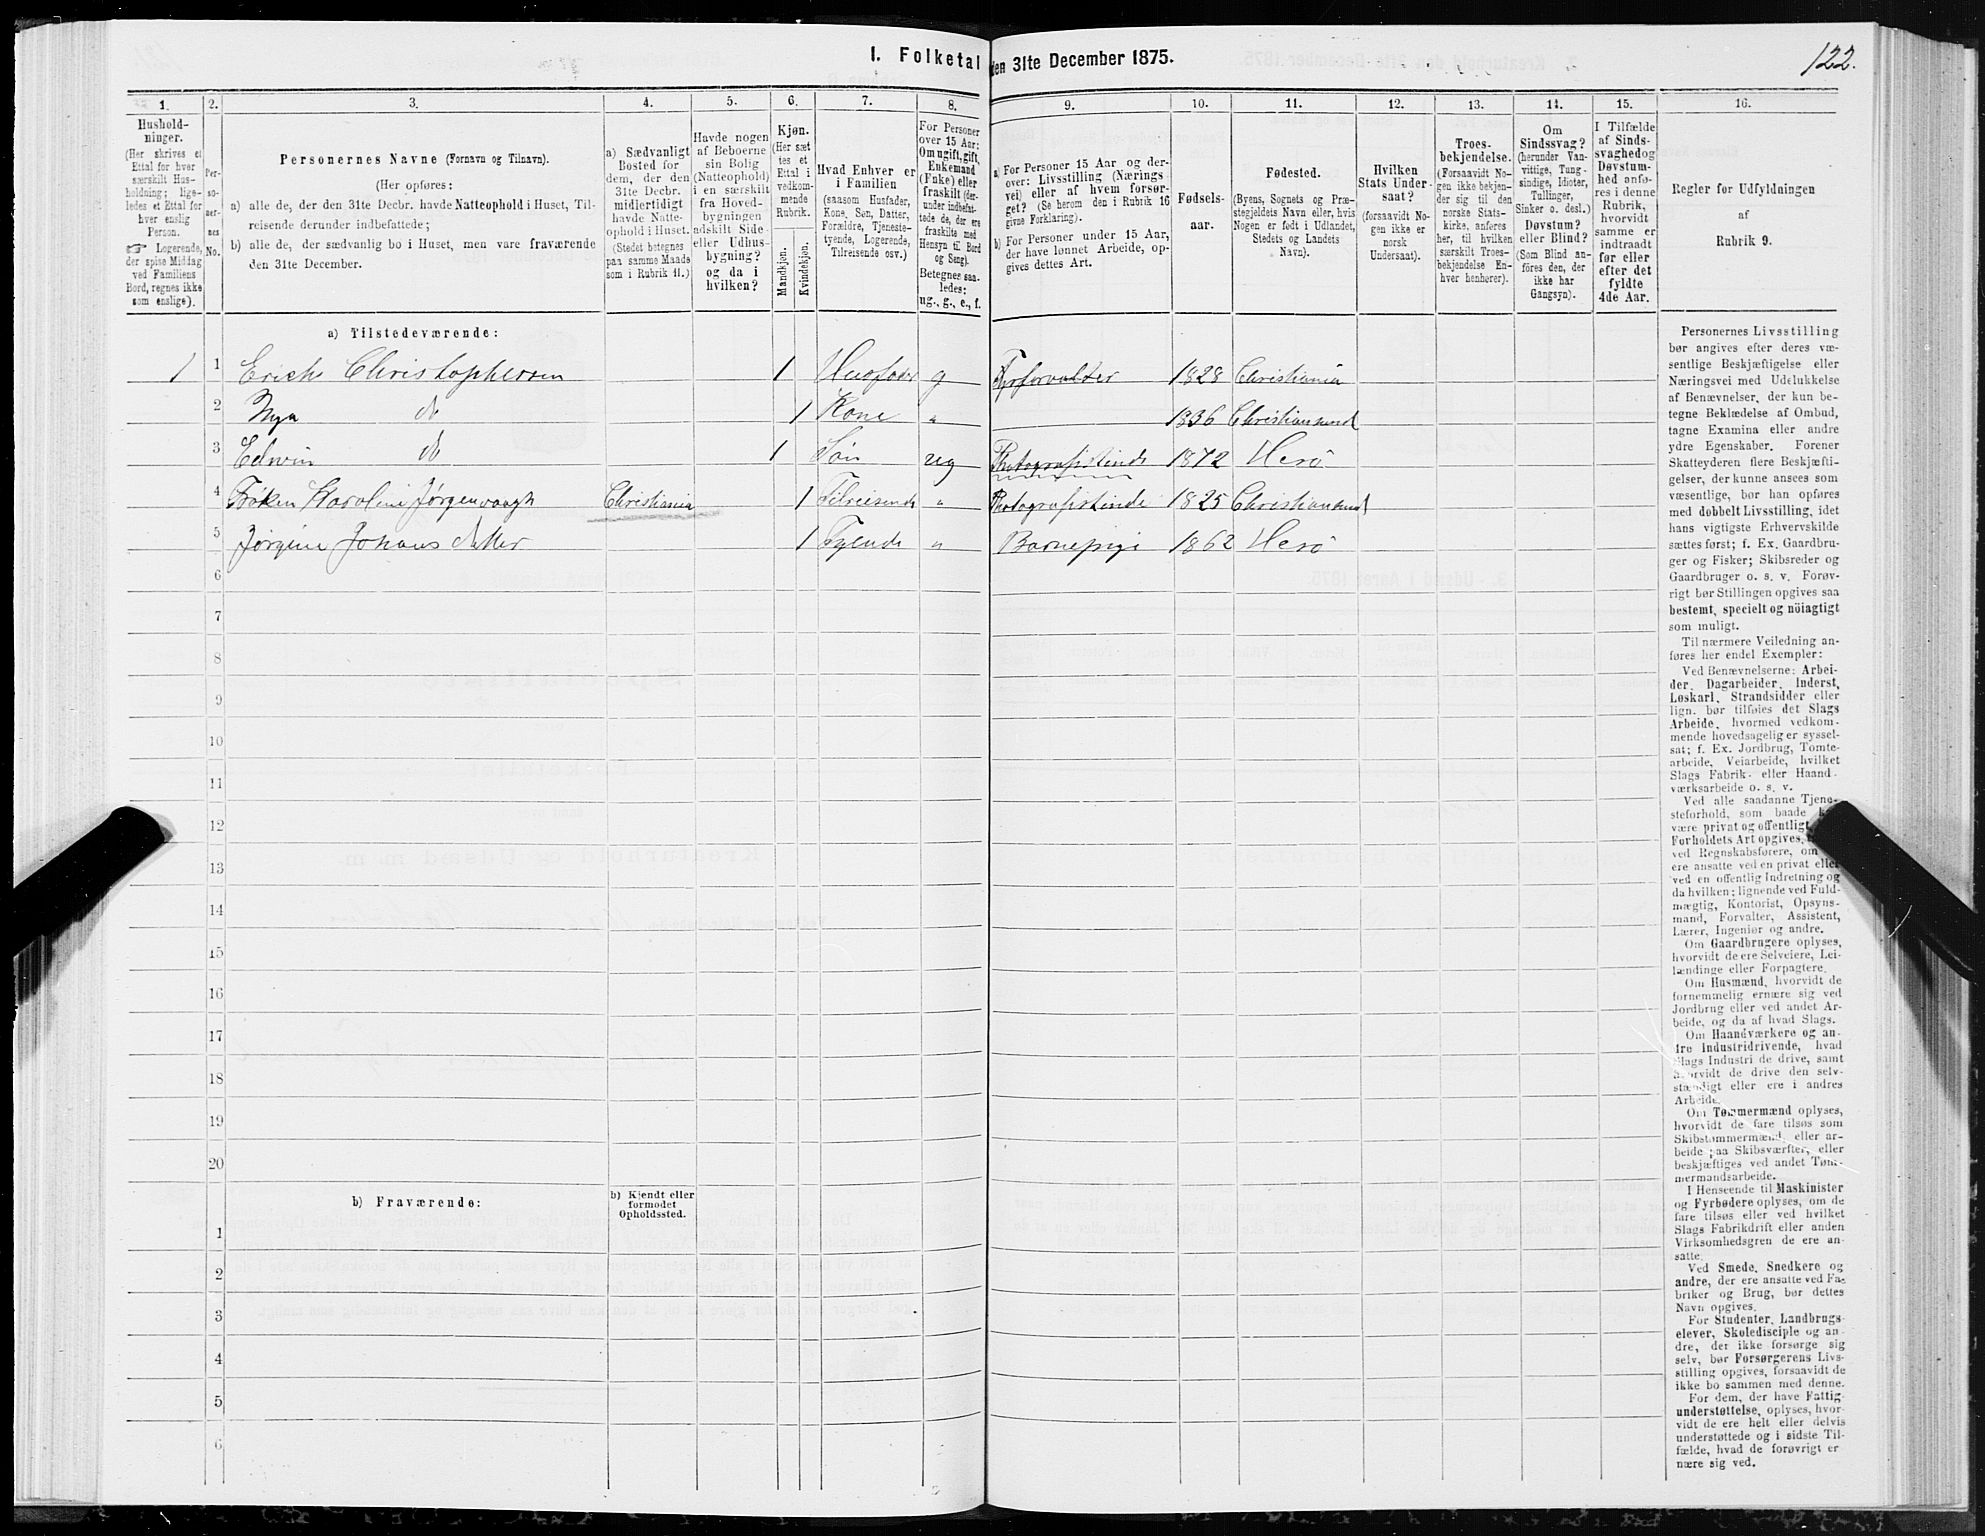 I. Folketal den 31te December 1875.
122.
1. 2. 3. 4. 5. 6. 7. 8. 9. 10. 11. 12. 13. 14. 15. 16.
Hushold-
ninger.
(Her skrives et
Ettal for hver
særskilt Hus-
holdning; lige-
ledes et Ettal for
hver enslig
Person.
☞ Logerende,
der spise Middag
ved Familiens
Bord, regnes ikke
som enslige).
Per-
so-
ner-
nes
No.
Personernes Navne (Fornavn og Tilnavn).
(Her opføres:
a) alle de, der den 31te Decbr. havde Natteophold i Huset, Til-
reisende derunder indbefattede;
b) alle de, der sædvanlig bo i Huset, men vare fraværende
den 31te December.
a) Sædvanligt
Bosted for
dem, der den
31te Decbr.
midlertidigt
havde Natte-
ophold i Huset.
(Stedet betegnes
paa samme Maade
som i Rubrik 11.)
Havde nogen
af Beboerne
sin Bolig
(Natteophold)
i en særskilt
fra Hoved-
bygningen
adskilt Side-
eller Udhus-
bygning?
og da i
hvilken?
Kjøn.
(Her sæt-
tes et
Ettal i
vedkom-
mende
Rubrik.
Mandkjøn.
Kvindekjøn.
Hvad Enhver er
i Familien
(saasom Husfader,
Kone, Søn, Datter,
Forældre, Tjeneste-
tyende, Logerende,
Tilreisende osv.)
For Personer
over 15 Aar:
Om ugift, gift,
Enkemand
(Enke) eller
fraskilt (der-
under indbefat-
tede de, der ere
fraskilte med
Hensyn til Bord
og Seng).
Betegnes saa-
ledes:
ug., g., e., f.
a) For Personer 15 Aar og der-
over: Livsstilling (Nærings-
vei) eller af hvem forsør-
get? (Se herom den i Rubrik 16
givne Forklaring).
b) For Personer under 15 Aar,
der have lønnet Arbeide, op-
gives dettes Art.
Fødsels-
aar.
Fødested.
(Byens, Sognets og Præ-
stegjeldets Navn eller, hvis
Nogen er født i Udlandet,
Stedets og Landets
Navn).
Hvilken
Stats Under-
saat?
(forsaavidt No-
gen ikke er
norsk
Undersaat).
Troes-
bekjendelse.
(Forsaavidt No-
gen ikke bekjen-
der sig til den
norske Stats-
kirke, anføres
her, til hvilken
særskilt Troes-
bekjendelse En-
hver henhører).
Om
Sindssvag?
(herunder Van-
vittige, Tung-
sindige, Idioter,
Tullinger,
Sinker o. desl.)
Døvstum?
eller Blind?
(Som Blind an-
føres den, der
ikke har
Gangsyn).
I Tilfælde
af Sinds-
svaghed og
Døvstum-
hed anfø-
res i denne
Rubrik,
hvorvidt
samme er
indtraadt
før eller
efter det
fyldte
4de Aar.
Regler for Udfyldningen
af
Rubrik 9.
a) Tilstedeværende:
1 1 Erich Christophersen 1 Husfader g Fyrforvalter 1828 Christiania
2 do 1 Kone „ 1836 Christiansund
3 Edwin do 1 Søn ug 1872 Herø
4 Frøken Karoline Christiania 1 Tilreisende „ 1825 Christiansund
5 Jørgine Johansdatter 1 Tyende „ Barnepige 1862 Herø
6
7
8
9
10
11
12
13
14
15
16
17
18
19
20
b) Fraværende:
b) Kjendt eller
formodet
Opholdssted.
1
2
3
4
5
6
Personernes Livsstilling
bør angives efter deres væ-
sentlige Beskjæftigelse eller
Næringsvei med Udelukkelse
af Benævnelser, der kun be-
tegne Beklædelse af Ombud,
tagne Examina eller andre
ydre Egenskaber. Forener
Skatteyderen flere Beskjæfti-
gelser, der kunne ansees som
væsentlige, bør han opføres
med dobbelt Livsstilling, idet
hans vigtigste Erhvervskilde
sættes først; f. Ex. Gaardbru-
ger og Fisker; Skibsreder og
Gaardbruger o. s. v. Forøv-
rigt bør Stillingen opgives saa
bestemt, specielt og nöiagtigt
som muligt.
Til nærmere Veiledning an-
føres her endel Exempler:
Ved Benævnelserne: Arbei-
der, Dagarbeider, Inderst,
Løskarl, Strandsidder eller
lign. bør tilføies det Slags
Arbeide, hvormed vedkom-
mende hovedsagelig er syssel-
sat; f. Ex. Jordbrug, Tomte-
arbeide, Veiarbeide, hvilket
Slags Fabrik- eller Haand-
værksarbeide o. s. v.
Ved alle saadanne Tjene-
steforhold, som baade
være privat og offentligt,
Forholdets Art opgives,
ved Regnskabsførere, om
ere ansatte ved en privat eller
ved en offentlig Indretning og
da hvilken; lignende ved Fuld-
mægtig, Kontorist, Opsyns-
mand, Forvalter, Assistent,
Lærer, Ingeniør og andre.
Om Gaardbrugere oplyses,
hvorvidt de ere Selveiere, Lei-
lændinge eller Forpagtere.
Om Husmænd, hvorvidt de
fornemmelig ernære sig ved
Jordbrug eller ved andet Ar-
beide, og da af hvad Slags.
Om Haandværkere og an-
dre Industridrivende, hvad
Slags Industri de drive, samt
hvorvidt de drive den selv-
stændigt eller ere i andres
Arbeide.
Om Tømmermænd oplyses,
hvorvidt de fare tilsøs som
Skibstømmermænd, eller ar-
beide paa Skibsværfter, eller
beskjæftiges ved andet Tøm-
mermandsarbeide.
I Henseende til Maskinister
og Fyrbødere oplyses, om de
fare tilsøs eller ved hvilket
Slags Fabrikdrift eller anden
Virksomhedsgren de ere an-
satte.
Ved Smede, Snedkere og
andre, der ere ansatte ved Fa-
briker og Brug, bør dettes
Navn opgives.
For Studenter, Landbrugs-
elever, Skoledisciple og an-
dre, der ikke forsørge sig
selv, bør Forsørgerens Livs-
stilling opgives, forsaavidt de
ikke bo sammen med denne.
For dem, der have Fattig-
understøttelse, oplyses, hvor-
vidt de ere helt eller delvis
understøttede og i sidste Til-
fælde, hvad de forøvrigt er-
nære sig ved.